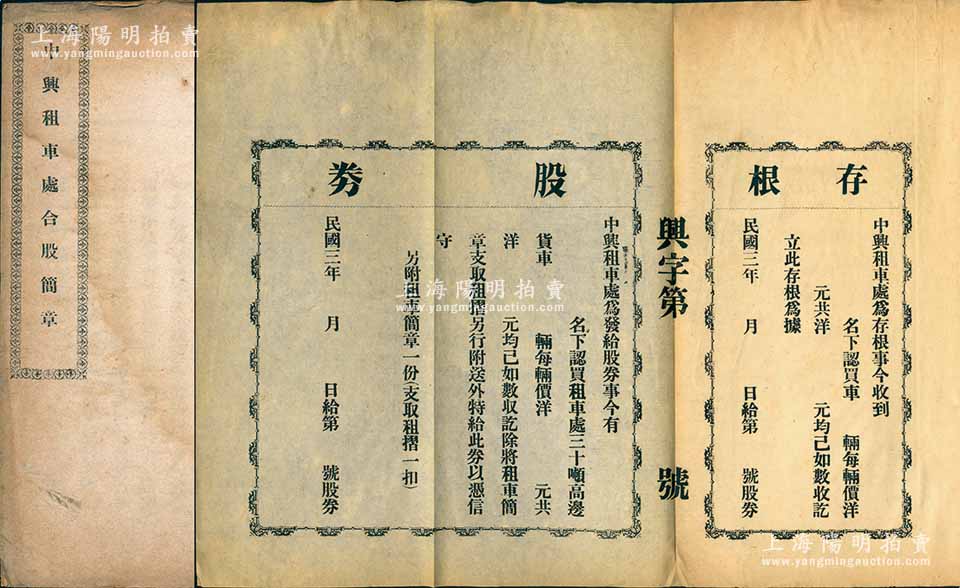 中興租車處合股簡章
存根
中興租車處爲存根事今收到
名下認買車 輛每輛價洋
元共洋 元均已如數收訖
立此存根爲據
民國三年 月 日給第 號股券
興字第 號
股券
中興租車處爲發給股券事今有
名下認買租車處三十噸高邊
貨車 輛每輛價洋 元共
洋 元均已如數收訖除將租車簡
章支取租摺另行附送外特給此券以憑信
守
另附租車簡章一份(支取租摺一扣)
民國三年 月 日給第 號股券
上海陽明拍賣
www.yangmingauction.com
上海陽明拍賣
www.yangmingauction.com
上海陽明拍賣
www.yangmingauction.com